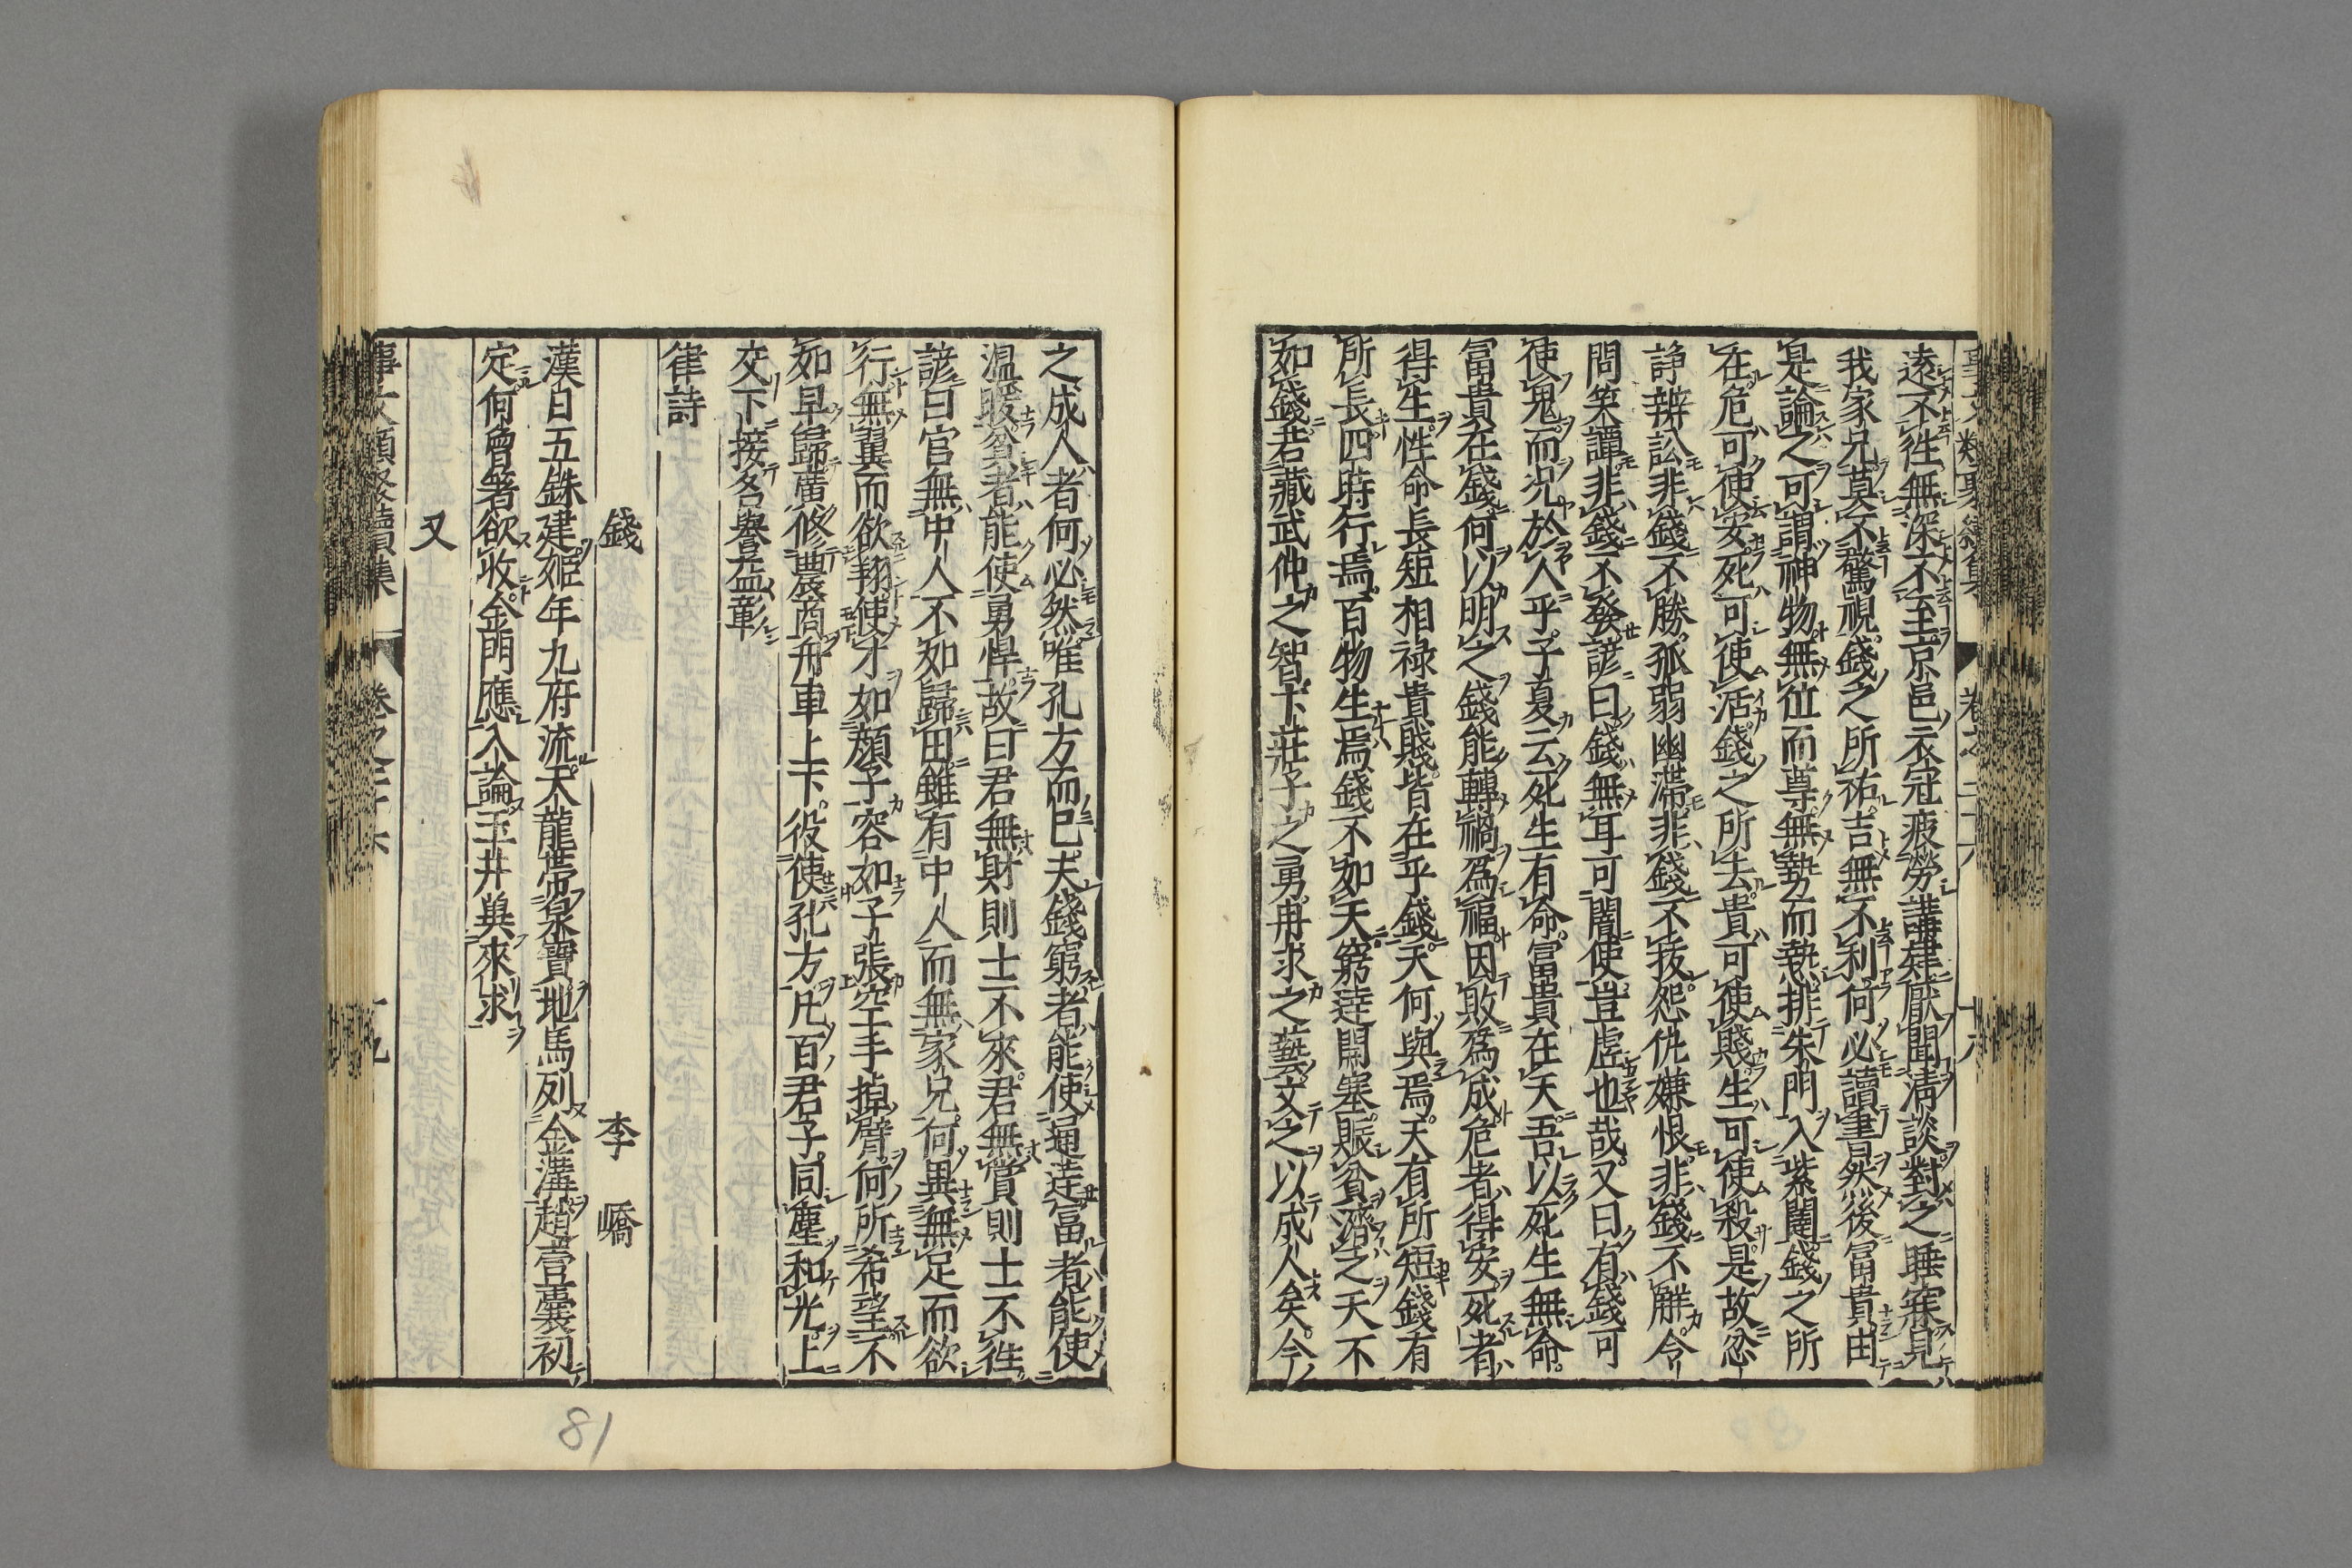 遠不往無深不至京邑衣冠疲勞講肄厭聞清談對之睡寐見
我家兄莫不驚視錢之所祐吉無不利何必讀書然後富貴由
是論之可謂神物無位而尊無勢而熱排朱門入紫闥錢之所
在危可使安死可使活錢之所去貴可使賤生可使殺是故忿
諍辨訟非錢不勝孤弱幽滯非錢不拔怨仇嫌恨非錢不解令
問笑譚非錢不發諺曰錢無耳可闇使豈虛也哉又曰有錢可
使鬼而況於人乎子夏云死生有命富貴在天吾以死生無命
富貴在錢何以明之錢能轉禍為福因敗為成危者得安死者
得生性命長短相祿貴賤皆在乎錢天何與焉天有所短錢有
所長四時行焉百物生焉錢不如天窮達開塞賑貧濟乏天不
如錢若臧武仲之智卞莊子之勇冉求之藝文之以成人矣今
之成人者何必然唯孔方而已夫錢窮者能使通達富者能使
溫暖貧者能使勇悍故曰君無財則士不來君無賞則士不往
諺曰官無中人不如歸田雖有中人而無家兄何異無足而欲
行無翼而欲翔使才如顏子容如子張空手掉臂何所希望不
如早歸廣修農商舟車上下役使孔方凡百君子同塵和光上
交下接名譽益彰
律詩
錢 李嶠
漢日五銖建姬年九府流天龍帶泉寶地馬列金溝趙壹囊初
定何曾箸欲收金門應入論玉井冀來求
又
事文類聚續集 卷之二十六 十九